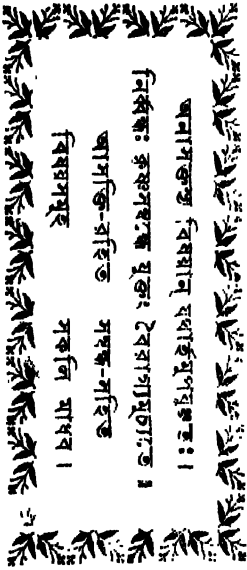 অনাসক্তস্য বিষয়ান্ যথার্হমুপযুঞ্জতঃ ।
নির্ব্বন্ধঃ কৃষ্ণসম্বন্ধে যুক্তং বৈরাগ্যমুচ্যতে ॥
আসক্তি-রহিত সম্বন্ধ-সহিত
বিষয়সমূহ সকলি মাধব ।